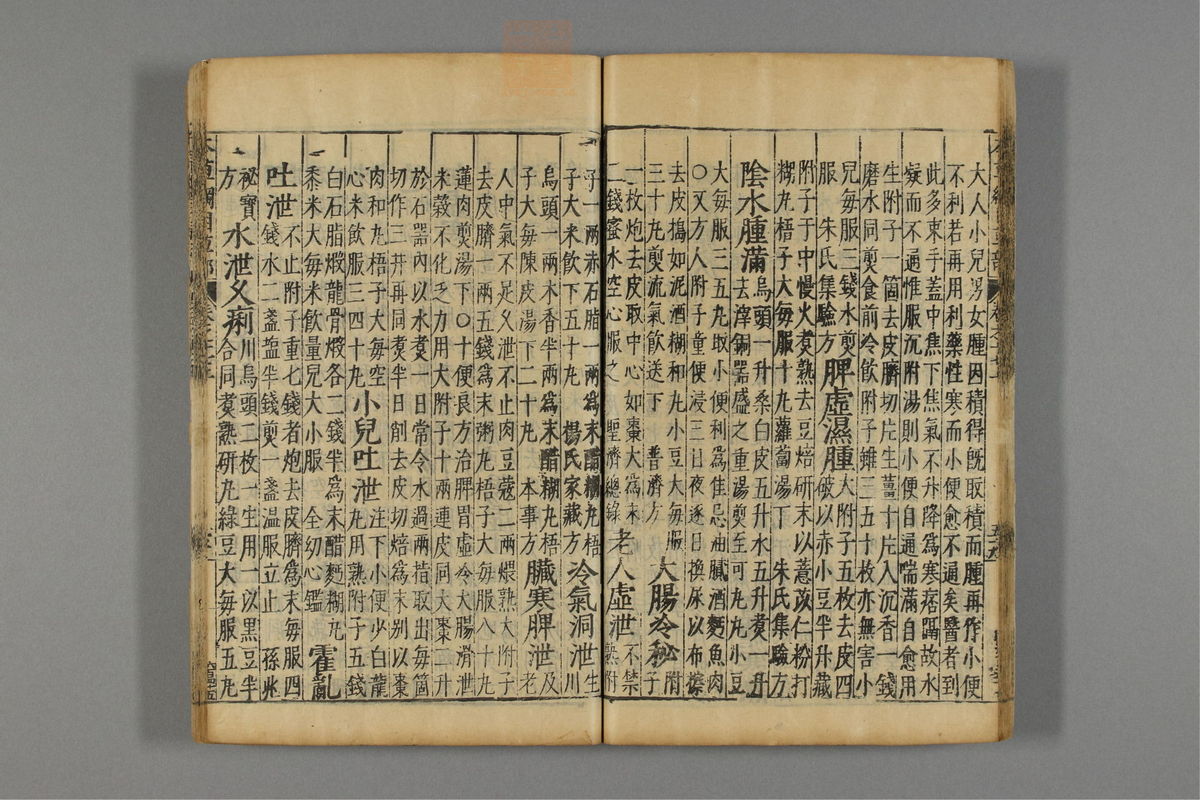 大人小兒男女腫因積得既取積而腫再作小便
不利若再用利藥性寒而小便愈不通矣醫者到
此多束手蓋中焦下焦氣不升降爲寒痞隔故水
凝而不通惟服沉附湯則小便自通喘滿自愈用
生附子一箇去皮臍切片生薑十片入沉香一錢
磨水同煎食前冷飲附子雖三五十枚亦無害小
兒每服三錢水煎
服 朱氏集驗方 脾虛濕腫大附子五枚去皮四破以赤小豆半升藏
附子于中慢火煮熟去豆焙研末以薏苡仁粉打
糊丸梧子大每服十丸蘿蔔湯下 朱氏集驗方
陰水腫滿烏頭一升桑白皮五升水五升煮一升去滓銅器盛之重湯煎至可丸丸小豆
大每服三五丸取小便利爲佳忌油膩酒麪魚肉
〇又方人附子童便浸三日夜逐日換尿以布擦
去皮搗如泥酒糊和丸小豆大每服
三十丸煎流氣飲送下 普濟方 大腸冷秘附子
一枚炮去皮取中心如棗大爲末
二錢蜜水空心服之 聖濟總錄 老人虛泄不禁熟附
子一兩赤石脂一兩爲末醋糊丸梧
子大米飲下五十丸 楊氏家藏方 冷氣洞泄生川
烏頭一兩木香半兩爲末醋糊丸梧
子大每陳皮湯下二十丸 本事方 臟寒脾泄及老
人中氣不足久泄不止肉豆蔻二兩煨熟大附子
去皮臍一兩五錢爲末粥丸梧子大每服八十丸
蓮肉煎湯下〇十便良方治脾胃虛冷大腸滑泄
米穀不化乏力用大附子十兩連皮同大棗二升
於石器內以水煮一日常令水過兩指取出每箇
切作三片再同煮半日削去皮切焙爲末别以棗
肉和丸梧子大每空
心米飲服三四十丸 小兒吐泄注下小便少白龍丸用熟附子五錢
白石脂煅龍骨煅各二錢半爲末醋麪糊丸
黍米大每米飲量兒大小服 全幼心鑑 霍亂
吐泄不止附子重七錢者炮去皮臍爲末每服四錢水二盞鹽半錢煎一盞温服立止 孫兆
祕寶
方 水泄久痢川烏頭二枚一生用一以黑豆半合同煮熟研丸綠豆大每服五丸